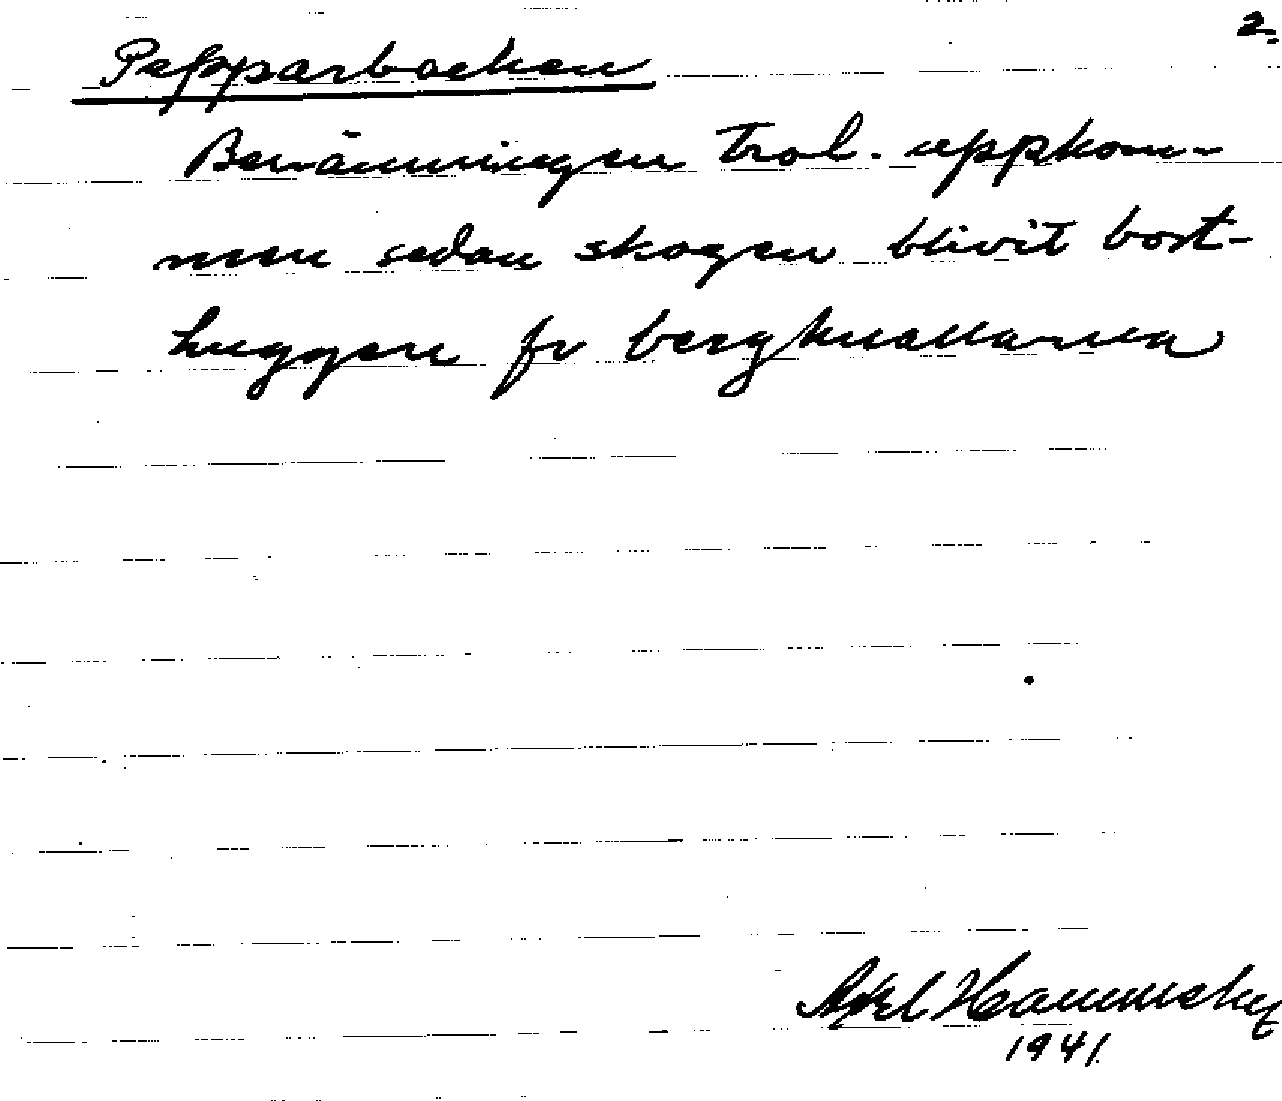 2.
Pepparbacken
Benämningen trol. uppkom-
men sedan skogen blivit bort-
huggen fr bergknallarna
Axel
1941.